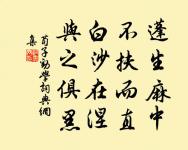 蓬生麻中
不扶而直
白沙在涅
與之俱黑
荀子勸學詞典網
集